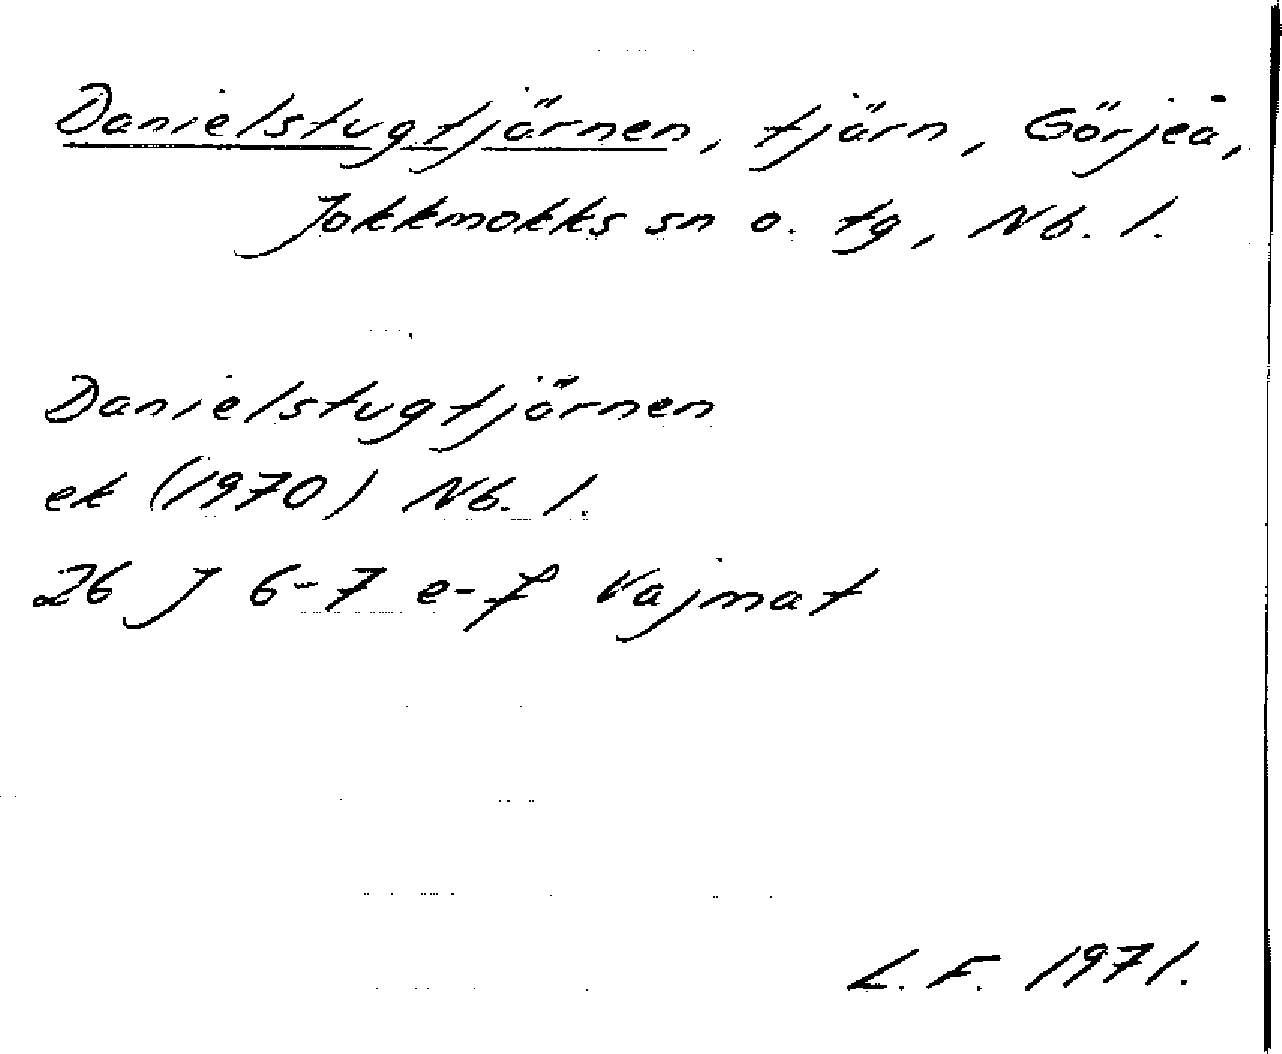 Danielstugtjärnen, tjärn, Görjeå,
Jokkmokks sn o. tg, Nb. l.
Danielstugtjärnen
ek (1970) Nb. l.
26 J 6-7 e-f Vajmat
L. F. 1971.